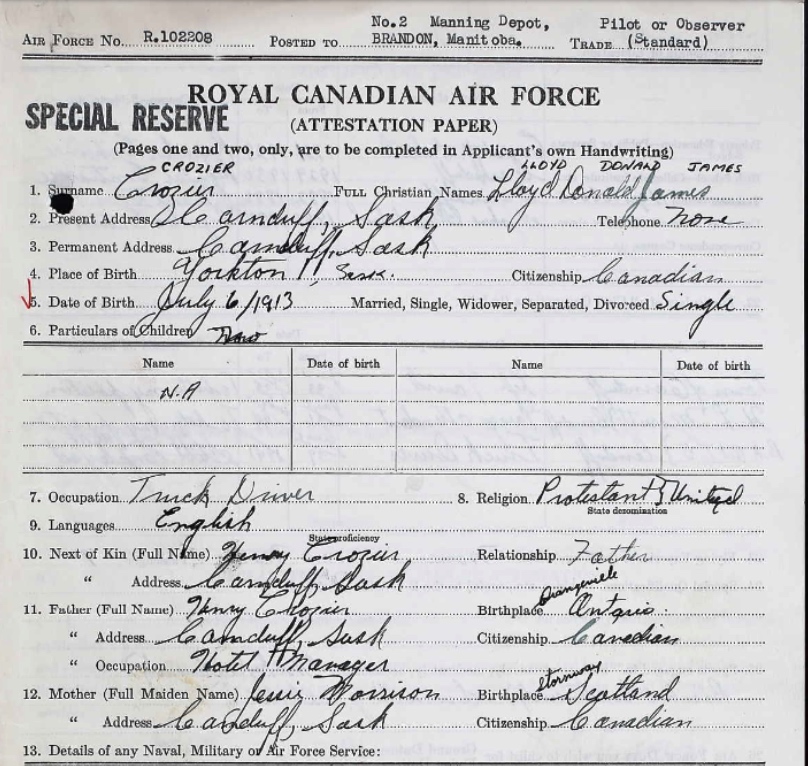 No.2 Manning Depot, Pilot or Observer
AIR FORCE NO. R.102208 POSTED TO BRANDON, Manitoba. TRADE (Standard)
ROYAL CANADIAN AIR FORCE
SPECIAL RESERVE
(ATTESTATION PAPER)
(Pages one and two, only, are to be completed in Applicant's own Handwriting)
CROZIER LLOYD DONALD JAMES
1. Surname Crozier FULL Christian Names Lloyd Donald James
2. Present Address Carnduff, Sask Telephone None
3. Permanent Address Carnduff, Sask
4. Place of Birth Yorkton, Sask. Citizenship Canadian
5. Date of Birth July 6/1913 Married, Single, Widower, Separated, Divorced Single
6. Particulars of Children
Name Date of birth Name Date of birth
N.A
7. Occupation Truck Driver 8. Religion Protestant United
State denomination
9. Languages English
State proficiency
10. Next of Kin (Full Name) Henry Crozier Relationship Father
" Address Carnduff, Sask
Orangeville
11. Father (Full Name) Henry Crozier Birthplace Ontario
" Address Carnduff, Sask Citizenship Canadian
" Occupation Hotel Manager
Stornway
12. Mother (Full Maiden Name) Jessie Morrison Birthplace Scotland
" Address Carnduff, Sask Citizenship Canadian
13. Details of any Naval, Military or Air Force Service: